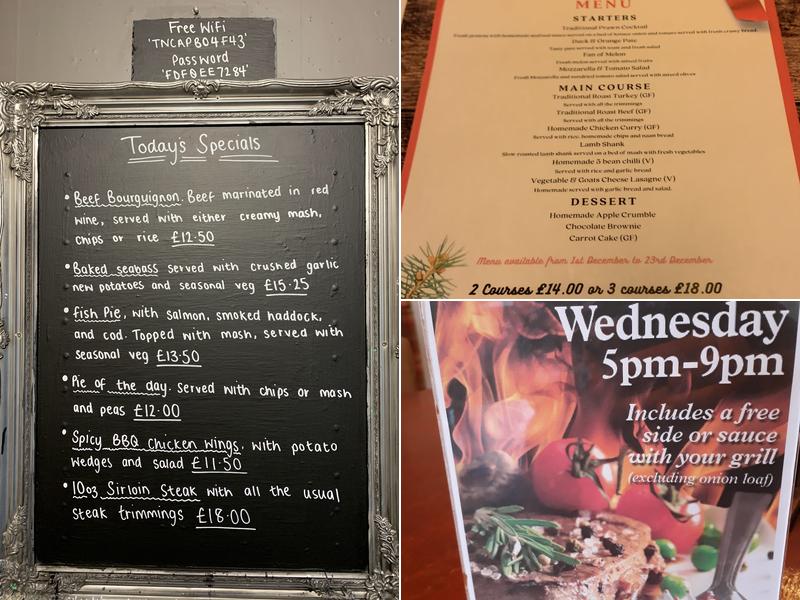 Free WiFi
'TNCAPB04F43'
Password
'FDFQEE7284'
Todays Specials
• Beef Bourguignon. Beef marinated in red
wine, served with either creamy mash,
chips or rice £12.50
• Baked seabass served with crushed garlic
new potatoes and seasonal veg £15.25
• fish Pie, with salmon, smoked haddock,
and cod. Topped with mash, served with
seasonal veg £13.50
• Pie of the day. served with chips or mash
and peas £12.00
• Spicy BBQ Chicken wings. with potato
wedges and salad £11.50
• 10oz Sirloin Steak with all the usual
steak trimmings £18.00
MENU
STARTERS
Traditional Prawn Cocktail
Fresh prawns with homemade seafood sauce served on a bed of lettuce onion and tomato served with fresh crusty bread.
Duck & Orange Pate
Tasty pate served with toast and fresh salad
Fan of Melon
Fresh melon served with mixed fruits
Mozzarella & Tomato Salad
Fresh Mozzarella and sundried tomato salad served with mixed olives
MAIN COURSE
Traditional Roast Turkey (GF)
Served with all the trimmings
Traditional Roast Beef (GF)
Served with all the trimmings
Homemade Chicken Curry (GF)
Served with rice, homemade chips and naan bread
Lamb Shank
Slow roasted lamb shank served on a bed of mash with fresh vegetables
Homemade 5 bean chilli (V)
Served with rice and garlic bread
Vegetable & Goats Cheese Lasagne (V)
Homemade served with garlic bread and salad.
DESSERT
Homemade Apple Crumble
Chocolate Brownie
Carrot Cake (GF)
Menu available from 1st December to 23rd December
2 Courses £14.00 or 3 courses £18.00
Wednesday
5pm-9pm
Includes a free
side or sauce
with your grill
(excluding onion loaf)